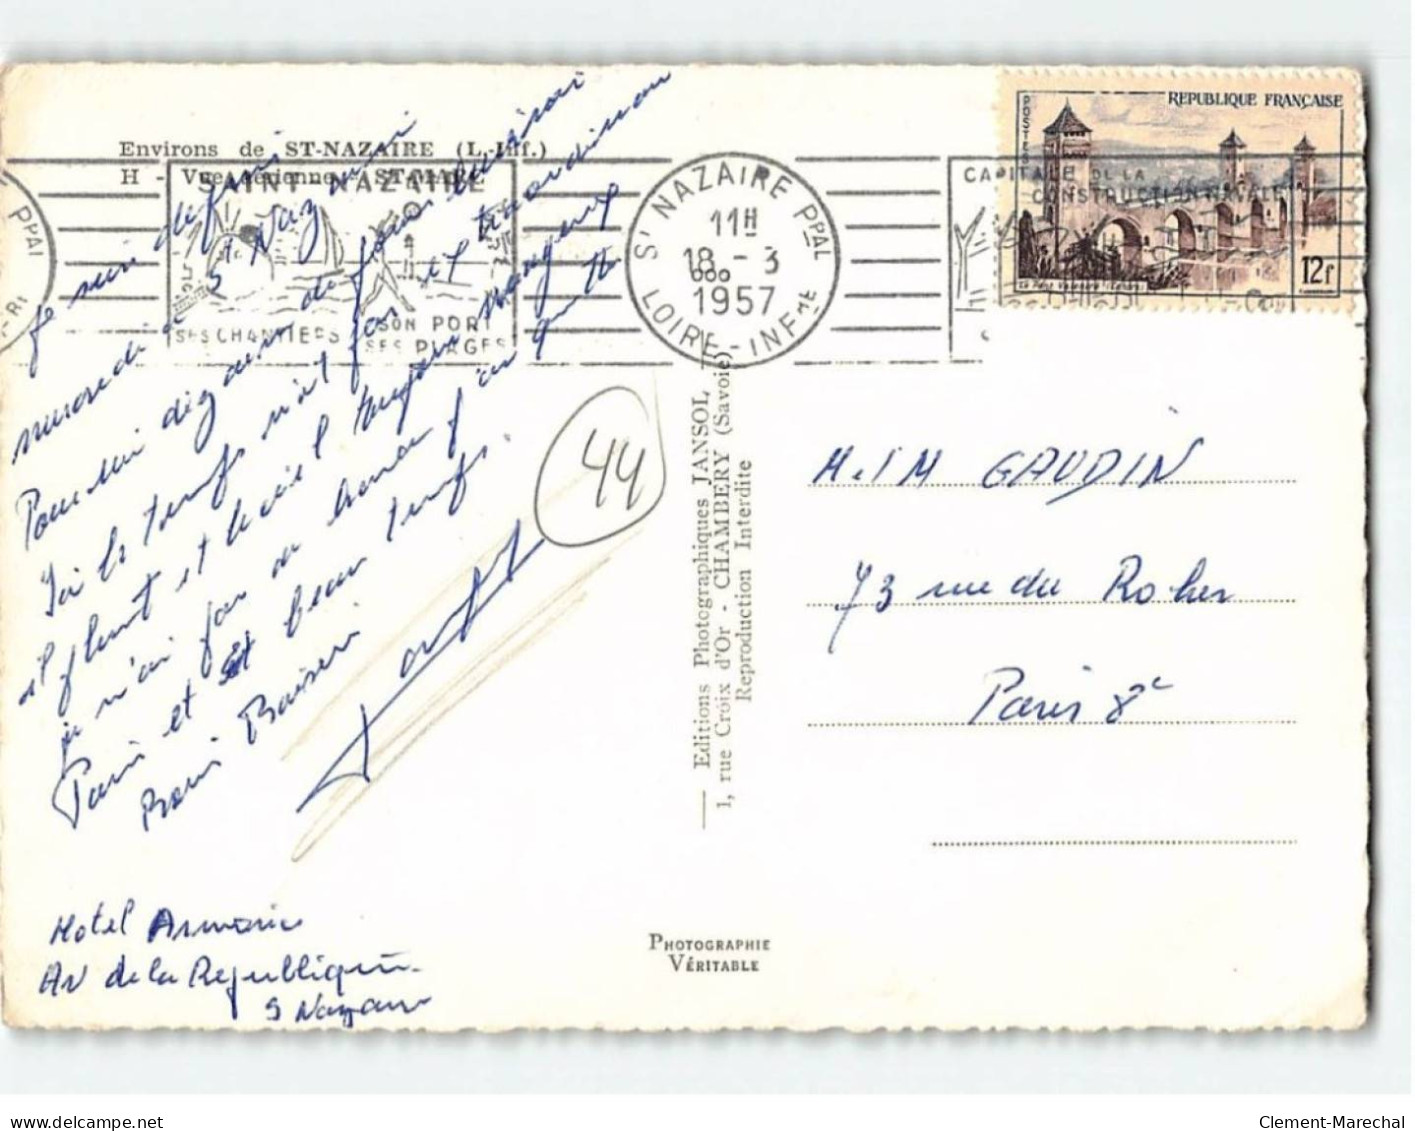 Environs de ST-NAZAIRE (L.-Inf.)
H - Vue aérienne ST-MARC
SAINT NAZAIRE
SES CHANTIERS
SON PORT
SES PLAGES
ST NAZAIRE PPAL
11H
18 - 3
1957
LOIRE - INFRE
PPAL
CAPITALE DE LA
CONSTRUCTION NAVALE
REPUBLIQUE FRANÇAISE
POSTES
12f
Je suis depuis
mercredi à St Nazaire
Pour une dizaine de jours
Ici le temps n'est pas extraordinaire
il pleut et
je n'ai pas
Paris et beau temps.
Bons Baisers
44
Editions Photographiques JANSOL
1, rue Croix d'Or - CHAMBERY (Savoie)
Reproduction Interdite
M. et M GAUDIN
73 rue du Rocher
Paris 8e
Hotel Armoric
Av de la République
S Nazaire
PHOTOGRAPHIE
VÉRITABLE
delcampe.net
Clement-Marechal